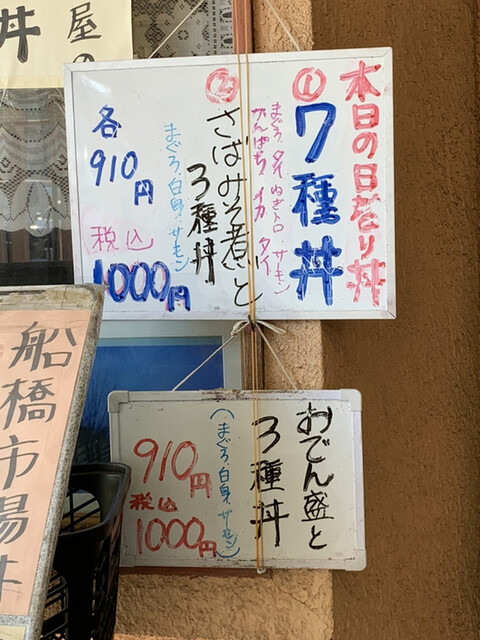 本日の日なり丼
①7種丼
まぐろ.タイ.ねぎトロ.サーモン
かんぱち.イカ タイ
②さばみそ煮と
3種丼
まぐろ.白身.サーモン
各
910円
(税込)
1000円
おでん盛と
3種丼
(まぐろ.白身.サーモン)
910円
税込
1000円
屋の
丼
船橋市場丼